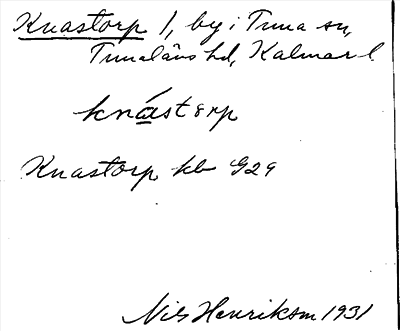 Knastorp 1, by i Tuna sn,
Tunaläns hd, Kalmar l
knástorp
Knastorp kb G29
Nils Henrikson 1931